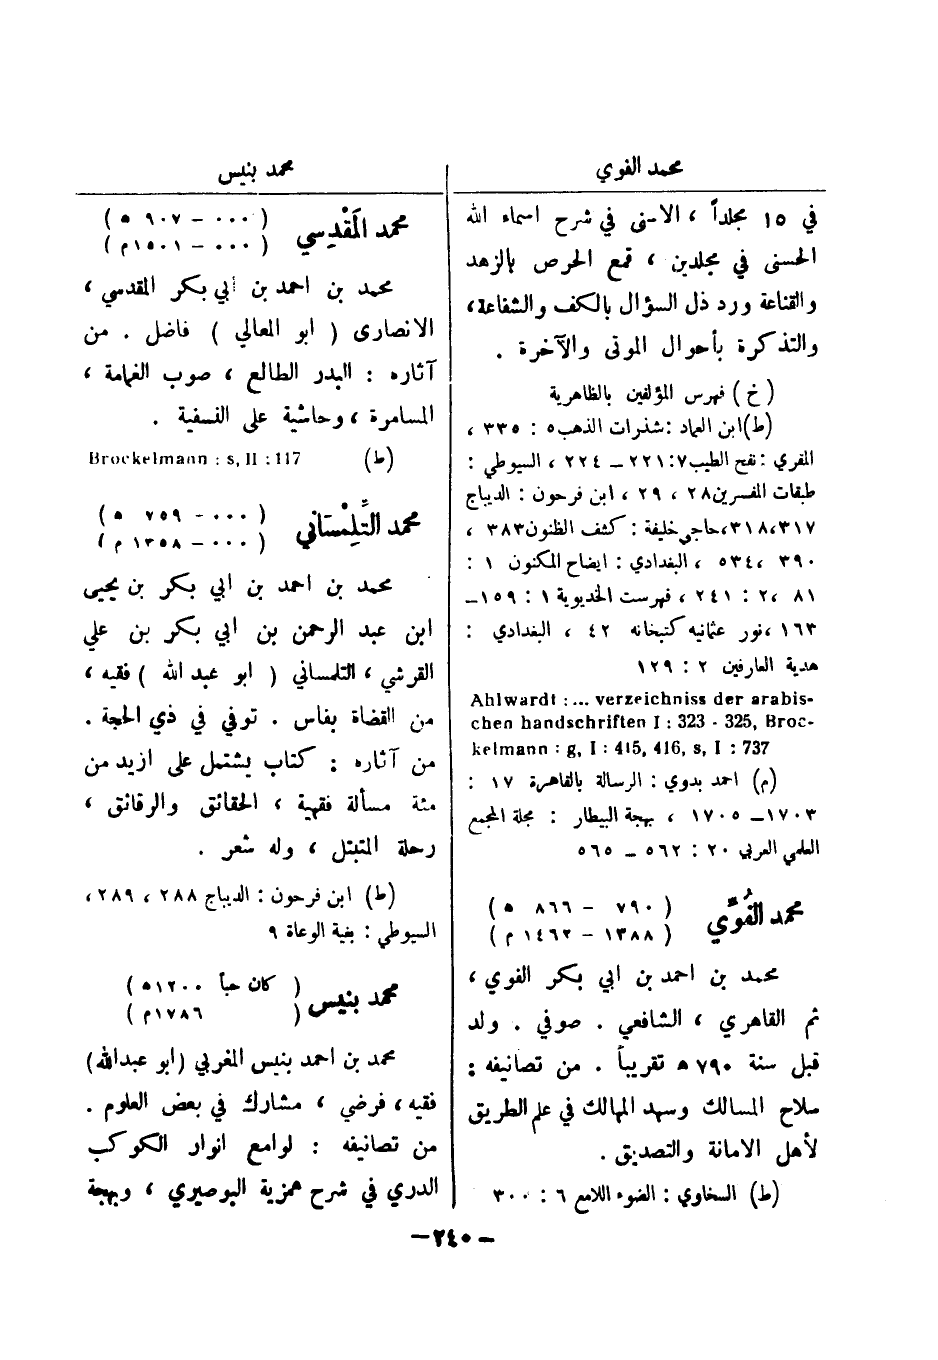 محمد الفوي
في ١٥ مجلداً ، الاسنى في شرح اسماء الله
الحسنى في مجلدين ، قمع الحرص بالزهد
والقناعة ورد ذل السؤال بالكف والشفاعة،
والتذكرة بأحوال الموتى والآخرة .
(خ) فهرس المؤلفين بالظاهرية
(ط) ابن العماد : شذرات الذهب ٥ : ٣٣٥ ،
المقري : نفح الطيب ٧: ٢٢١ – ٢٢٤ ، السيوطي :
طبقات المفسرين ٢٨ ، ٢٩ ، ابن فرحون : الديباج
٣١٧،٣١٨، حاجي خليفة : كشف الظنون ٣٨٣ ،
٣٩٠ ، ٥٣٤ ، البغدادي : ايضاح المكنون ١ :
٨١ ، ٢ : ٢٤١ ، فهرست الخديوية ١ : ١٥٩ –
١٦٣ ، نور عثمانيه كتبخانه ٤٢ ، البغدادي :
هدية العارفين ٢ : ١٢٩
Ahlwardt : ... verzeichniss der arabis-
chen handschriften I : 323 - 325, Broc-
kelmann : g, I : 415, 416, s, I : 737
(م) احمد بدوي : الرسالة بالقاهرة ١٧ :
١٧٠٣ – ١٧٠٥ ، بهجة البيطار : مجلة المجمع
العلمي العربي ٢٠ : ٥٦٢ – ٥٦٥
محمد الفُوِّي ( ٧٩٠ – ٨٦٦ ه )
( ١٣٨٨ – ١٤٦٢ م )
محمد بن احمد بن ابي بكر الفوي ،
ثم القاهري ، الشافعي . صوفي . ولد
قبل سنة ٧٩٠ ه تقريباً . من تصانيفه :
سلاح المسالك وسهد المهالك في علم الطريق
لأهل الامانة والتصديق .
(ط) السخاوي : الضوء اللامع ٦ : ٣٠٠
محمد بنيس
محمد المَقْدِسي ( ٠٠٠ – ٩٠٧ ه )
( ٠٠٠ – ١٥٠١م )
محمد بن احمد بن أبي بكر المقدسي ،
الانصاري ( ابو المعالي ) فاضل . من
آثاره : البدر الطالع ، صوب الغمامة ،
المسامرة ، وحاشية على النسفية .
(ط) Brockelmann : s, II : 117
محمد التِّلِمْسَاني ( ٠٠٠ – ٧٥٩ ه )
( ٠٠٠ – ١٣٥٨ م )
محمد بن احمد بن ابي بكر بن يحيى
ابن عبد الرحمن بن ابي بكر بن علي
القرشي ، التلمساني ( ابو عبد الله ) فقيه ،
من القضاة بفاس . توفي في ذي الحجة .
من آثاره : كتاب يشتمل على ازيد من
مئة مسألة فقهية ، الحقائق والرقائق ،
رحلة المتبتل ، وله شعر .
(ط) ابن فرحون : الديباج ٢٨٨ ، ٢٨٩ ،
السيوطي : بغية الوعاة ٩
محمد بنيس ( كان حياً ١٢٠٠ه )
( ١٧٨٦م )
محمد بن احمد بنيس المغربي (ابو عبدالله)
فقيه ، فرضي ، مشارك في بعض العلوم .
من تصانيفه : لوامع انوار الكوكب
الدري في شرح همزية البوصيري ، وبهجة
– ٢٤٠ –